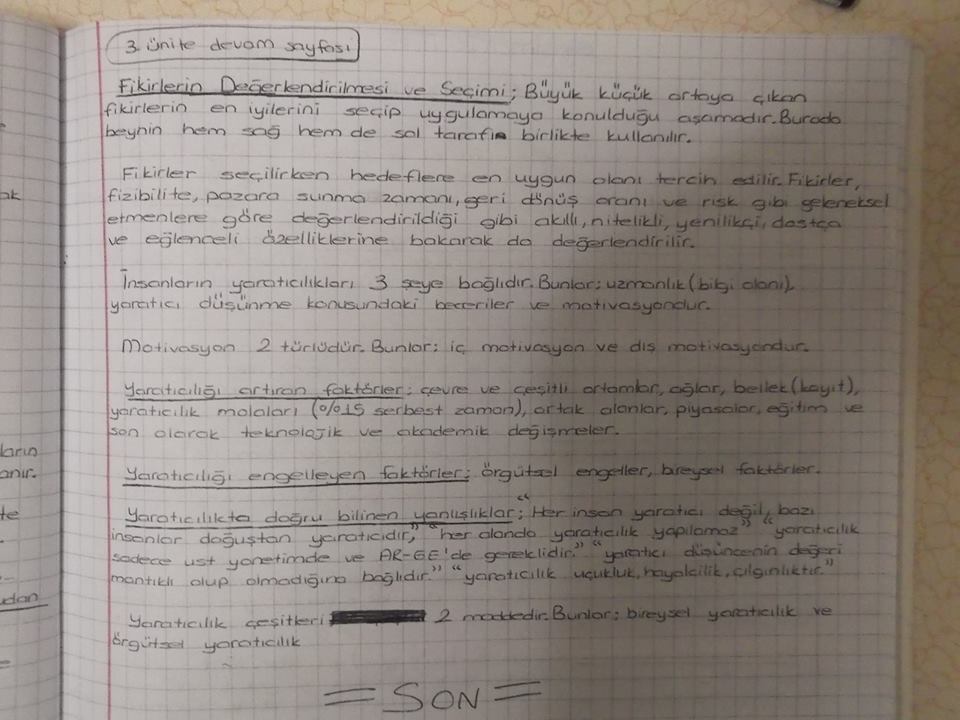 3. ünite devam sayfası
Fikirlerin Değerlendirilmesi ve Seçimi; Büyük küçük ortaya çıkan
fikirlerin en iyilerini seçip uygulamaya konulduğu aşamadır. Burada
beynin hem sağ hem de sol tarafı birlikte kullanılır.
Fikirler seçilirken hedeflere en uygun olanı tercih edilir. Fikirler,
fizibilite, pazara sunma zamanı, geri dönüş oranı ve risk gibi geleneksel
etmenlere göre değerlendirildiği gibi akıllı, nitelikli, yenilikçi, dostça
ve eğlenceli özelliklerine bakarak da değerlendirilir.
İnsanların yaratıcılıkları 3 şeye bağlıdır. Bunlar; uzmanlık (bilgi alanı),
yaratıcı düşünme konusundaki beceriler ve motivasyondur.
Motivasyon 2 türlüdür. Bunlar; iç motivasyon ve dış motivasyondur.
Yaratıcılığı artıran faktörler; çevre ve çeşitli ortamlar, ağlar, bellek (kayıt),
yaratıcılık molaları (%15 serbest zaman), ortak alanlar, piyasalar, eğitim ve
son olarak teknolojik ve akademik değişmeler.
Yaratıcılığı engelleyen faktörler; örgütsel engeller, bireysel faktörler.
Yaratıcılıkta doğru bilinen yanlışlıklar; "Her insan yaratıcı değil, bazı
insanlar doğuştan yaratıcıdır," "her alanda yaratıcılık yapılamaz" "yaratıcılık
sadece üst yönetimde ve AR-GE'de gereklidir." "yaratıcı düşüncenin değeri
mantıklı olup olmadığına bağlıdır." "yaratıcılık uçukluk, hayalcilik, çılgınlıktır."
Yaratıcılık çeşitleri 2 maddedir. Bunlar; bireysel yaratıcılık ve
örgütsel yaratıcılık
= SON =
ak
ların
anır.
te
udan